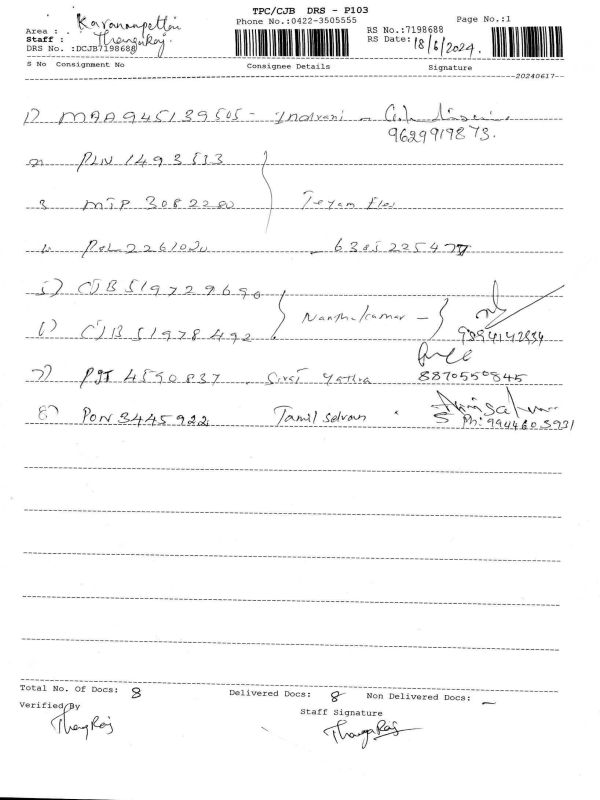 TPC/CJB DRS - P103
Area : Karanampettai
Phone No.:0422-3505555
Page No.:1
Staff : Thangaraj.
RS No.:7198688
DRS No. :DCJB7198688
RS Date: 18/6/2024.
S No Consignment No Consignee Details Signature
20240617
1) MAA945139505 - Indrani -
9629919873.
2) PLN 1493533
3 MTP 3082280
4 POL 2261020 - 6385225477
5) CJB 519729690
6) CJB 51978492 Nanthakumar - 9894142334
7) PJT 4590837 . Sivai Yathra 8870550845
8) PON 3445922 Tamil Selvan
Ph: 9944605931
Total No. Of Docs: 8 Delivered Docs: 8 Non Delivered Docs: -
Verified By
Staff Signature
ThangRaj
ThangaRaj